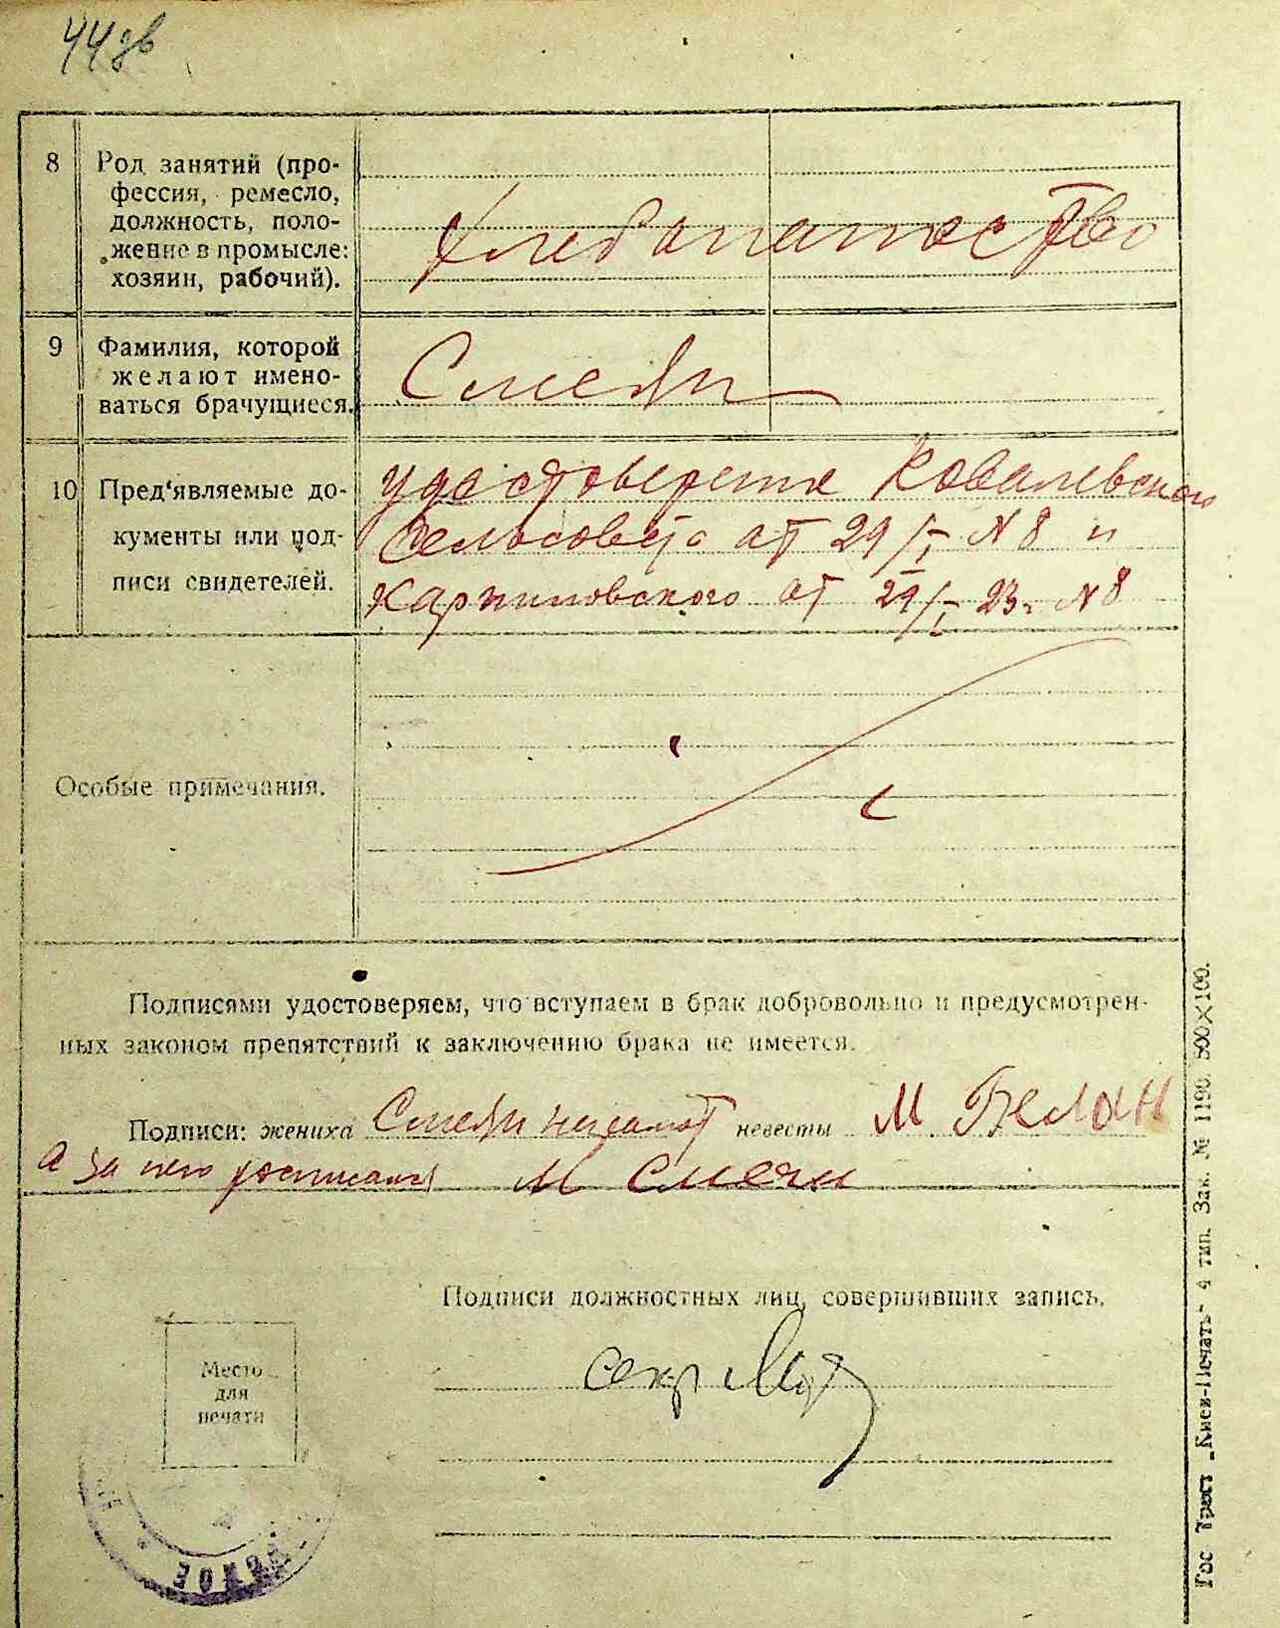 44 зв
8 Род занятий (про-
фессия, ремесло,
должность, поло-
жение в промысле:
хозяин, рабочий).
Хлебопашество
9 Фамилия, которой
желают имено-
ваться брачущиеся.
10 Пред'являемые до-
кументы или под-
писи свидетелей.
удостоверения Ковалевского
Сельсовета от 29/I N 8 и
Карпиловского от 29/I 23г. N 8
Особые примечания.
Подписями удостоверяем, что вступаем в брак добровольно и предусмотрен-
ных законом препятствий к заключению брака не имеется.
Подписи: жениха неграмот невесты М Белан
а за него росписался М
Подписи должностных лиц, совершивших запись.
секр
Место
для
печати
Гос Трест „Киев-Печать" 4 тип. Зак. № 1190. 500×100.